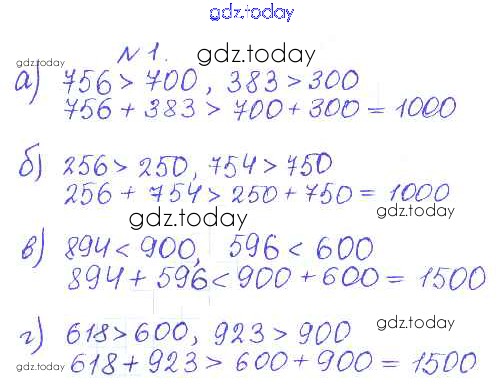 gdz.today
№ 1.
gdz.today
а) 756 > 700, 383 > 300
gdz.today
756 + 383 > 700 + 300 = 1000
б) 256 > 250, 754 > 750
256 + 754 > 250 + 750 = 1000
gdz.today
gdz.today
в) 894 < 900, 596 < 600
894 + 596 < 900 + 600 = 1500
г) 618 > 600, 923 > 900
gdz.today
618 + 923 > 600 + 900 = 1500
gdz.today